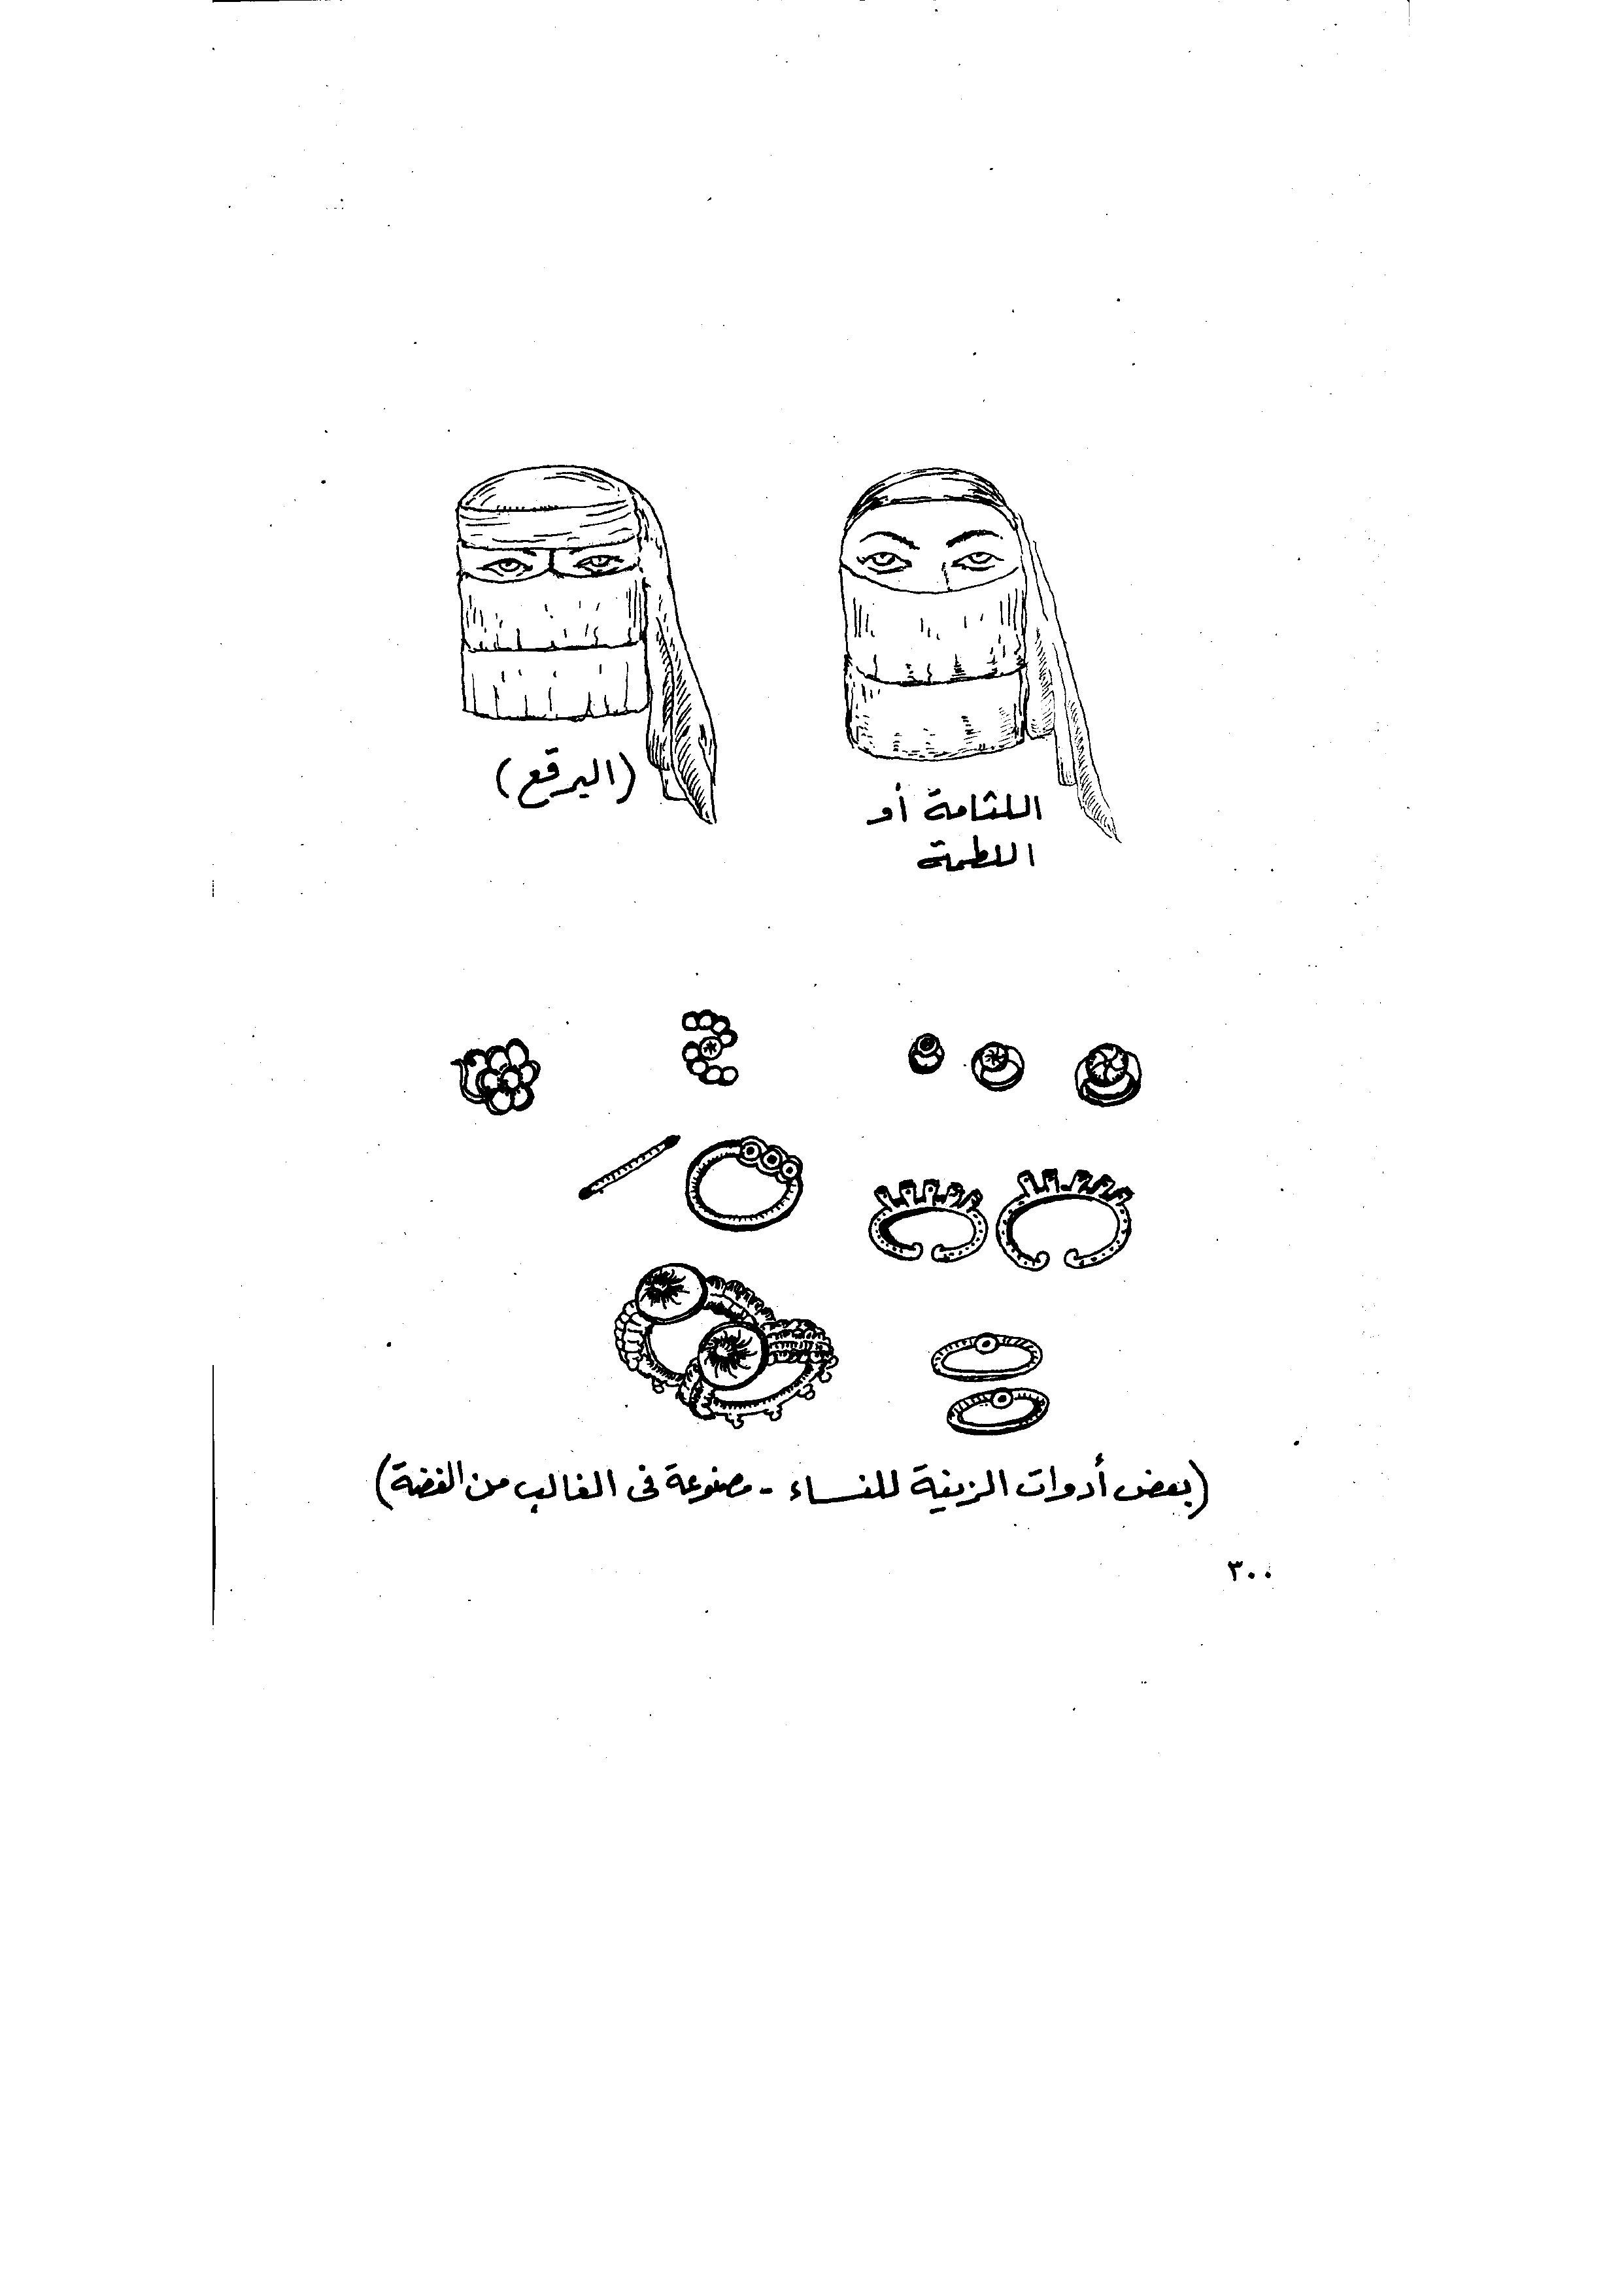 (البرقع)
اللثامة أو
اللطمة
(بعض أدوات الزينة للنساء - مصنوعة فى الغالب من الفضة)
٣٠٠